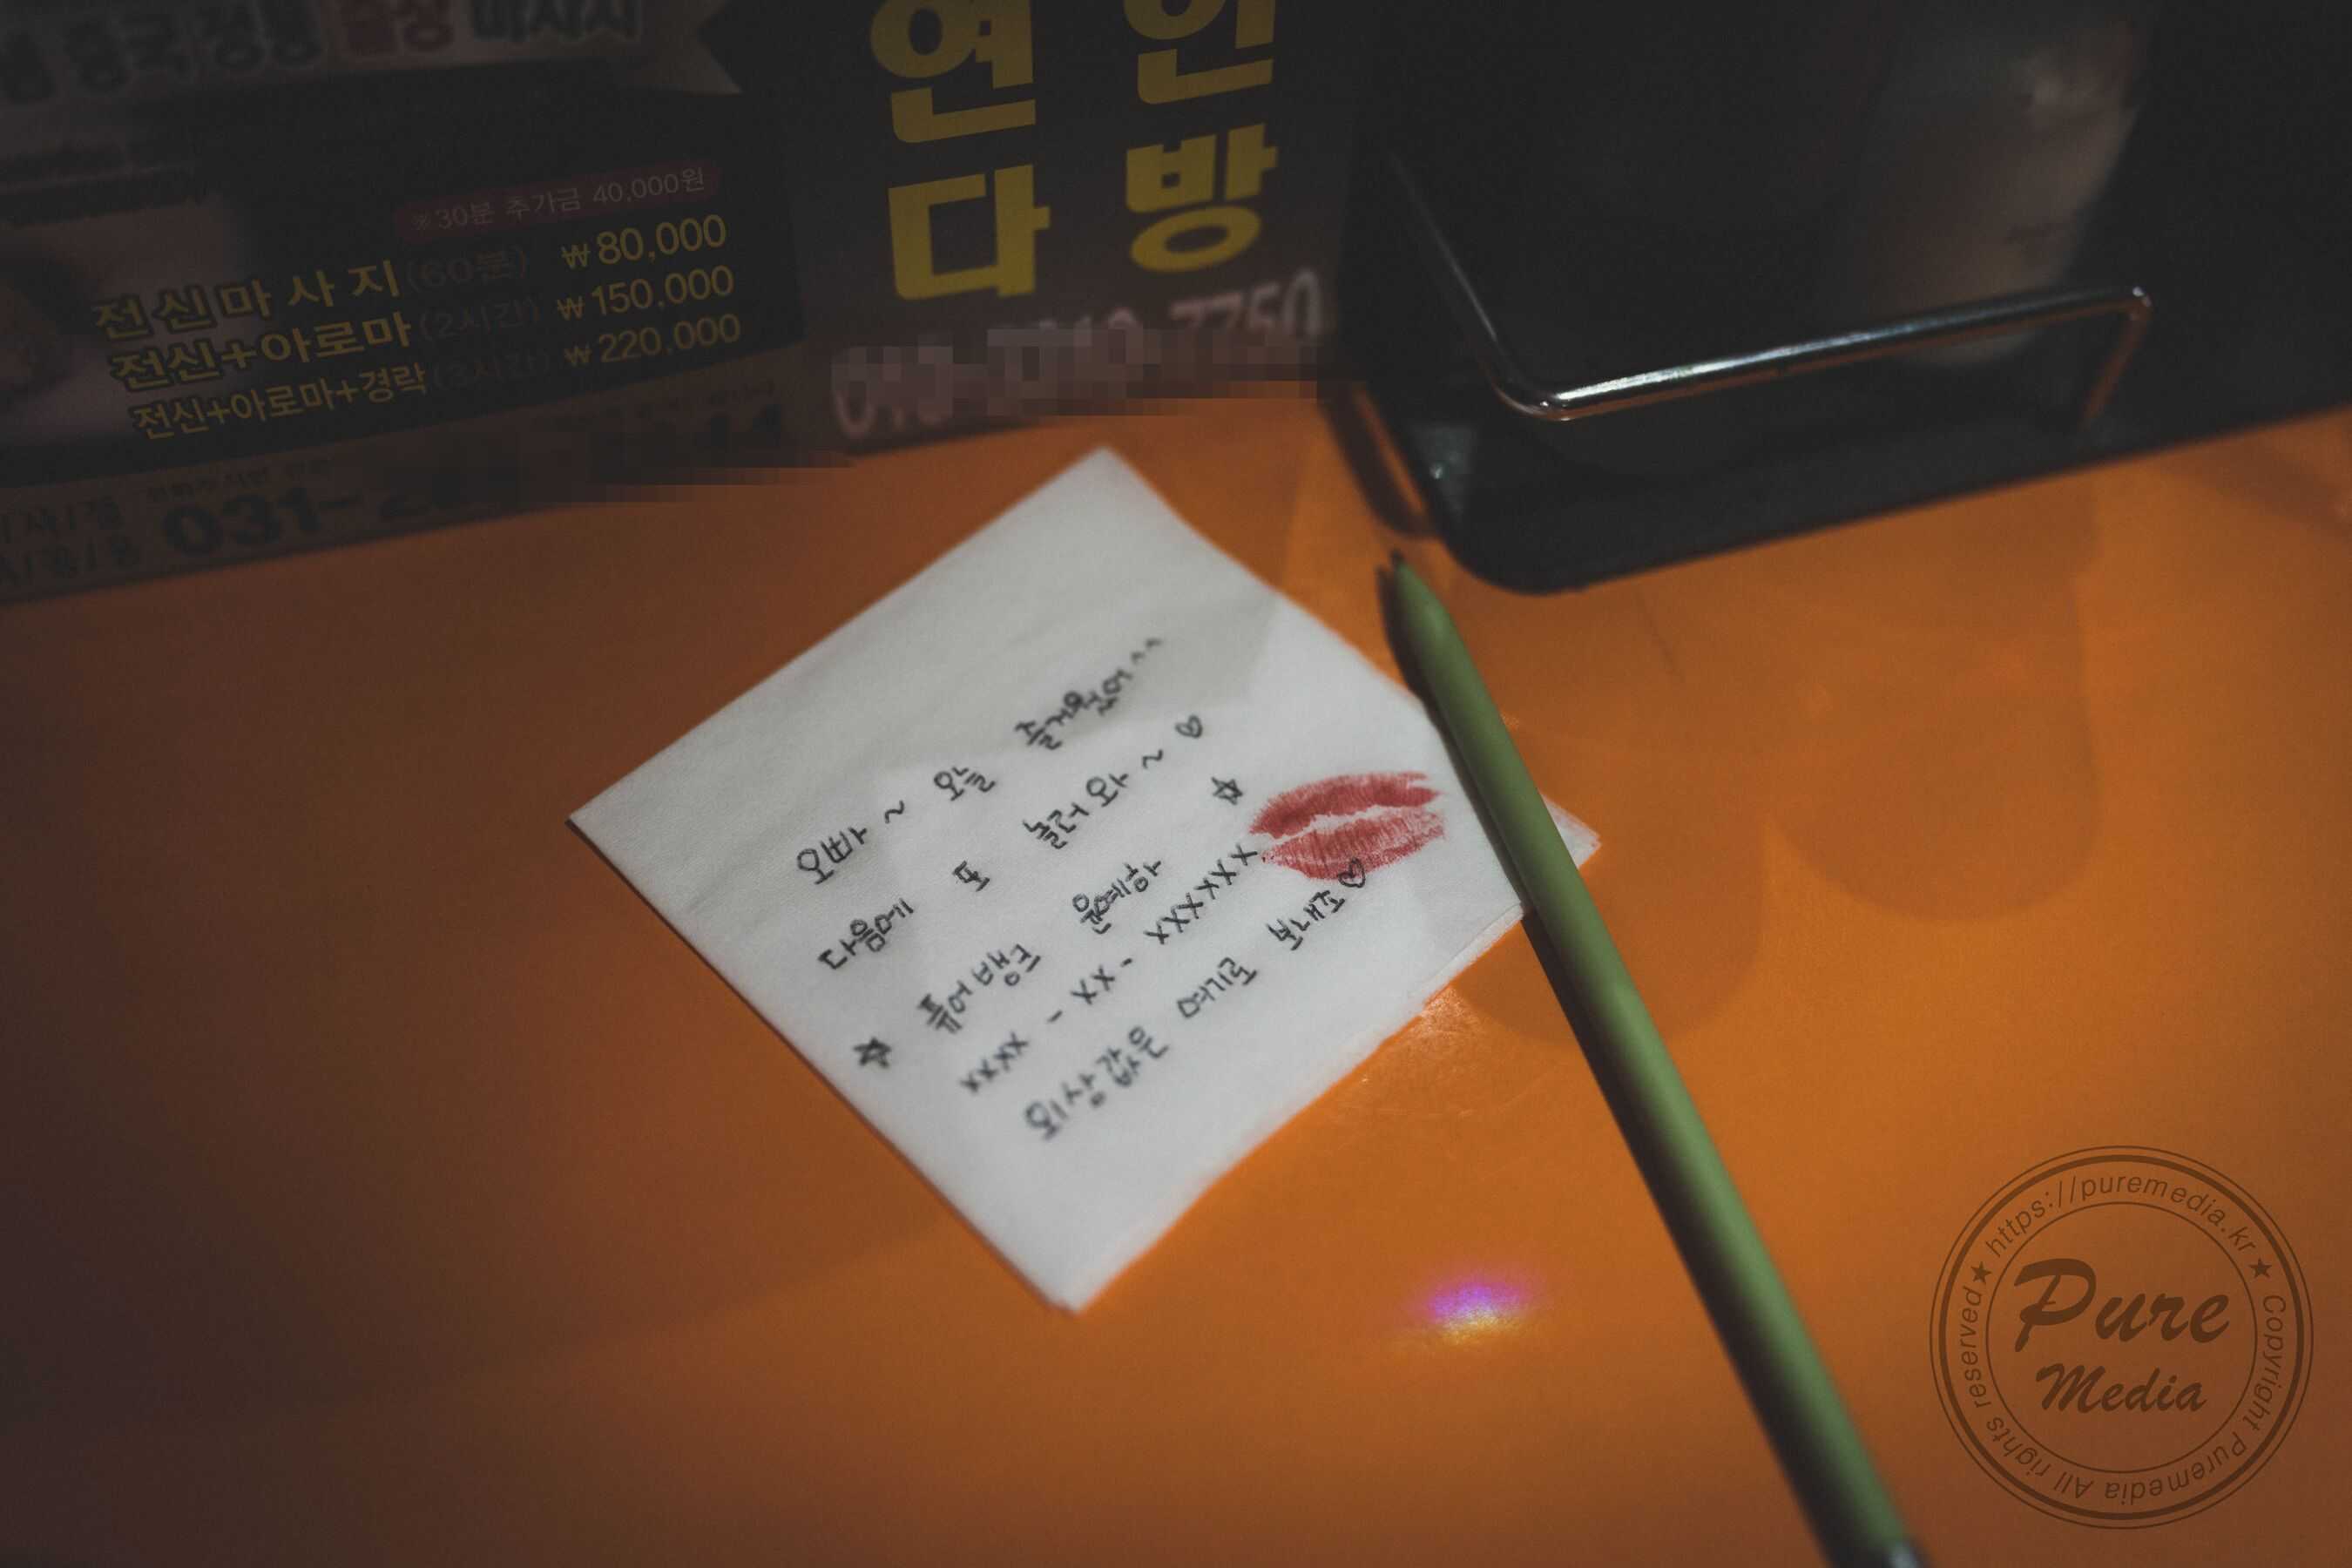 중국 정통 출장 마사지
※30분 추가금 40,000원
전신마사지(60분) ₩80,000
전신+아로마(2시간) ₩150,000
전신+아로마+경락(3시간) ₩220,000
031-
연인
다방
오빠~ 오늘 즐거웠어^^
다음에 또 놀러와~♡
☆ 퓨어뱅크 윤예하 ☆
xxxx - xx - xxxxxxx
외상값은 여기로 보내죠♡
Pure
Media
★ https://puremedia.kr ★ Copyright Puremedia All rights reserved